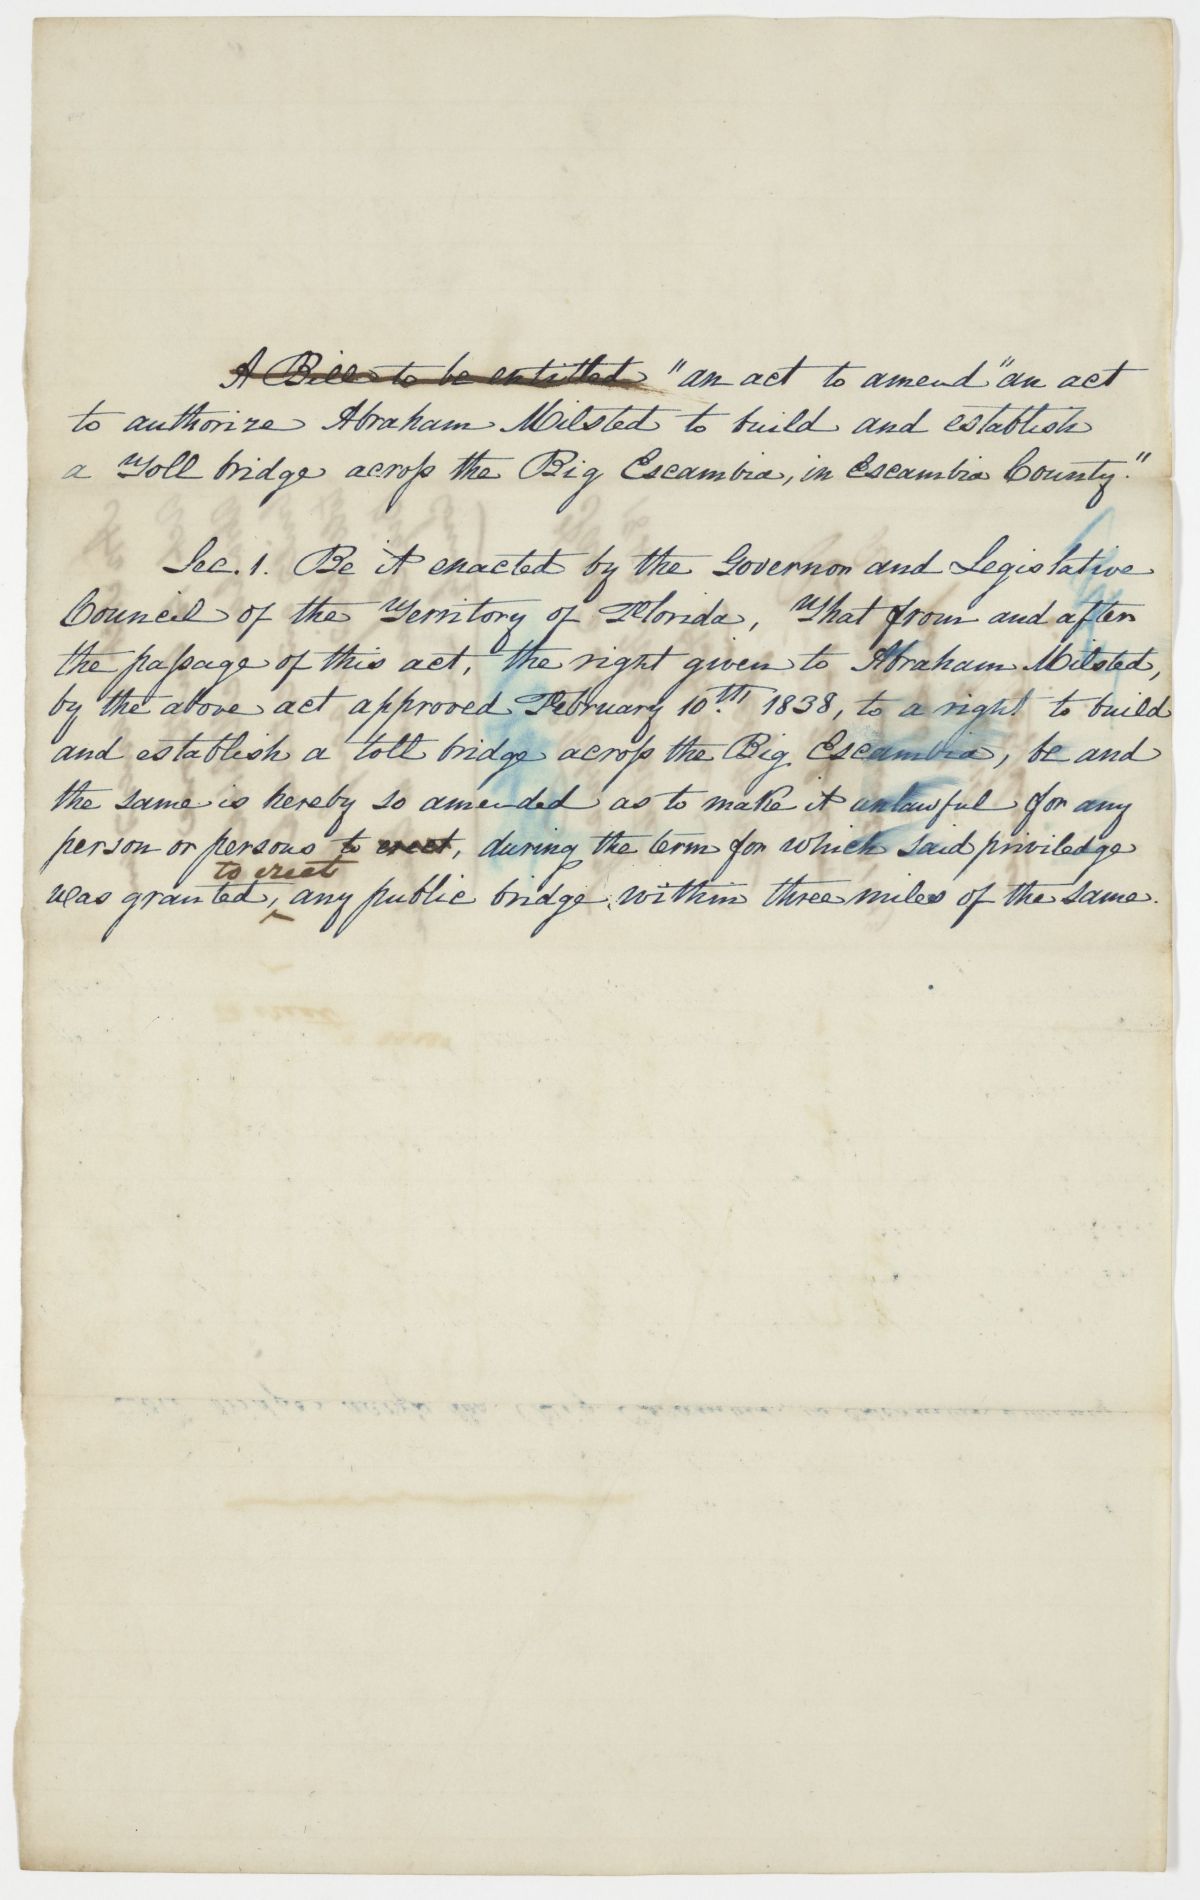 A Bill to be entitled "an act to amend "an act
to authorize Abraham Milsted to build and establish
a Toll bridge across the Big Escambia, in Escambia County."
Sec. 1. Be it enacted by the Governor and Legislative
Council of the Territory of Florida, That from and after
the passage of this act, the right given to Abraham Milsted,
by the above act approved February 10th 1838, to a right to build
and establish a toll bridge across the Big Escambia, be and
the same is hereby so amended as to make it unlawful for any
person or persons to erect, during the term for which said priviledge
to erect
was granted, any public bridge, within three miles of the same.